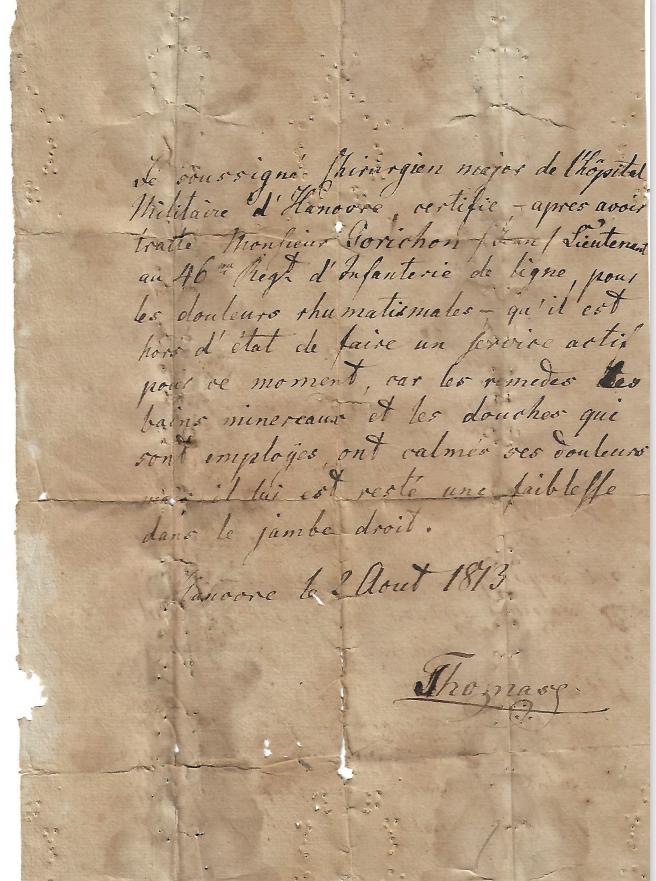 Je soussigné Chirurgien major de l'hôpital
Militaire d'Hanovre, certifie - apres avoir
traitté Monsieur Gorichon / Jean / Lieutenant
au 46me Regt. d'Infanterie de ligne, pour
les douleurs rhumatismales - qu'il est
hors d'état de faire un service actif
pour ce moment, car les remedes les
bains minereaux et les douches qui
sont employes, ont calmés ses douleurs
mais il lui est resté une faiblesse
dans le jambe droit.
Hanovre le 2 Aout 1813